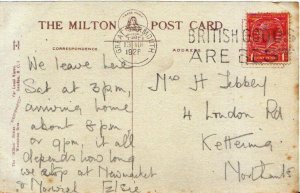 THE MILTON POST CARD
CORRESPONDENCE
ADDRESS
GREAT YARMOUTH
1928
BRITISH GOODS
ARE BEST
We leave here
Sat at 3pm,
arriving home
about 8pm
or 9pm, it all
depends how long
we stop at Newmarket
& Norwich Elsie
Mrs H Tebbey
4 London Rd
Kettering
Northants